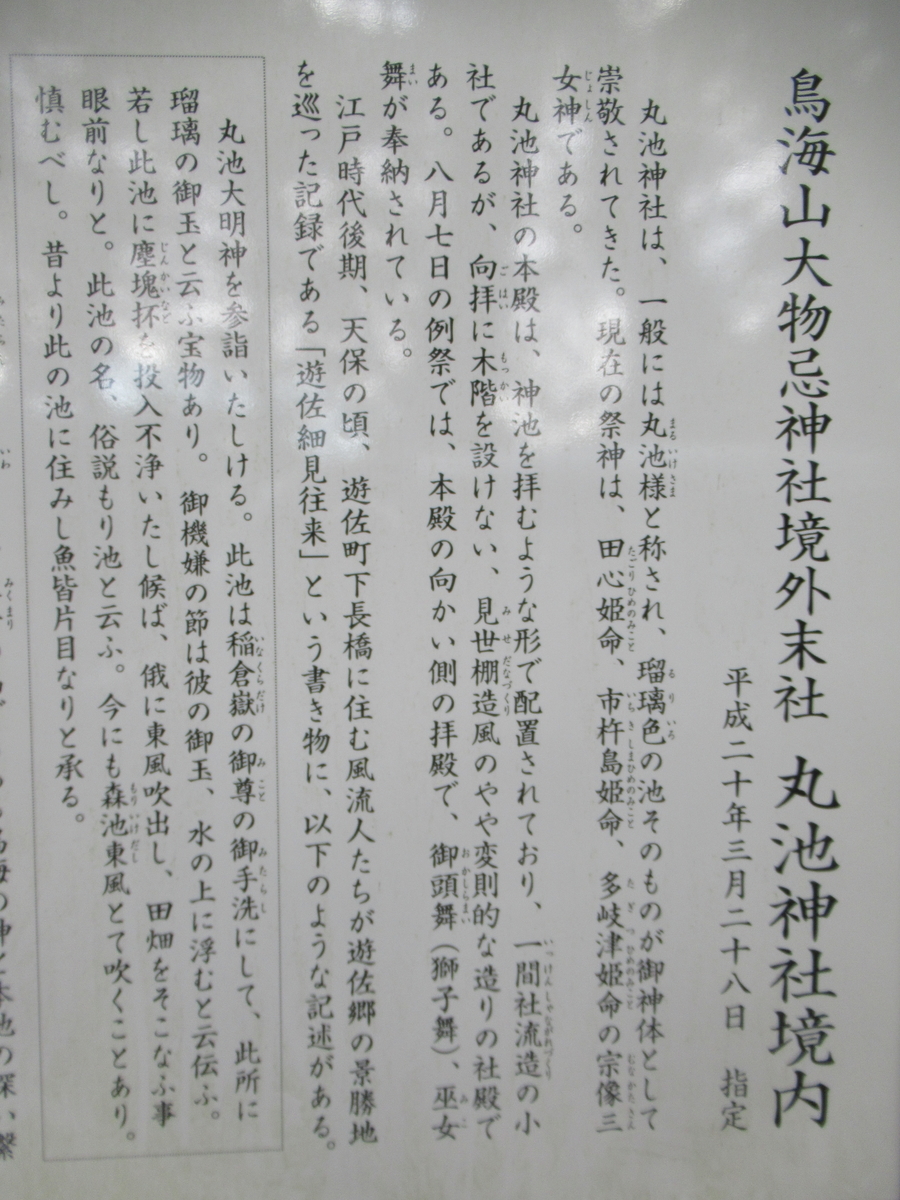 鳥海山大物忌神社境外末社 丸池神社境内
平成二十年三月二十八日 指定
丸池神社は、一般には丸池様と称され、瑠璃色の池そのものが御神体として
崇敬されてきた。現在の祭神は、田心姫命、市杵島姫命、多岐津姫命の宗像三
女神である。
丸池神社の本殿は、神池を拝むような形で配置されており、一間社流造の小
社であるが、向拝に木階を設けない、見世棚造風のやや変則的な造りの社殿で
ある。八月七日の例祭では、本殿の向かい側の拝殿で、御頭舞(獅子舞)、巫女
舞が奉納されている。
江戸時代後期、天保の頃、遊佐町下長橋に住む風流人たちが遊佐郷の景勝地
を巡った記録である「遊佐細見往来」という書き物に、以下のような記述がある。
丸池大明神を参詣いたしける。此池は稲倉嶽の御尊の御手洗にして、此所に
瑠璃の御玉と云ふ宝物あり。御機嫌の節は彼の御玉、水の上に浮むと云伝ふ。
若し此池に塵塊抔を投入不浄いたし候ば、俄に東風吹出し、田畑をそこなふ事
眼前なりと。此池の名、俗説もり池と云ふ。今にも森池東風とて吹くことあり。
慎むべし。昔より此の池に住みし魚皆片目なりと承る。